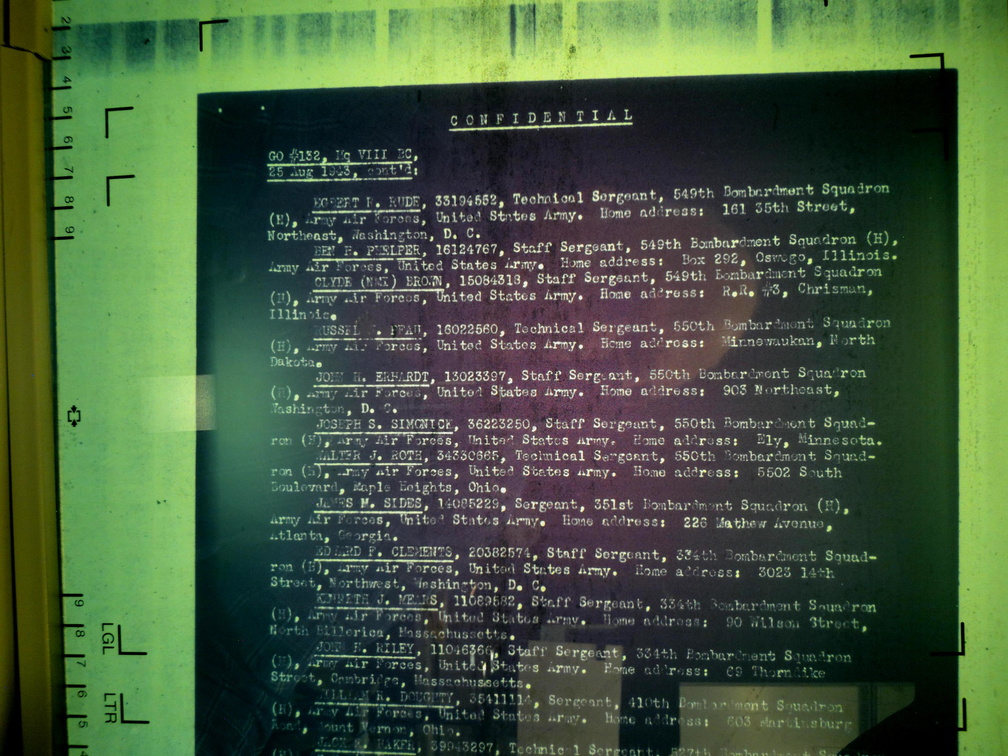 CONFIDENTIAL
GO #132, Hq VIII BC,
25 Aug 1943, cont'd:
EGBERT P. RUDE, 33194552, Technical Sergeant, 549th Bombardment Squadron
(H), Army Air Forces, United States Army. Home address: 161 35th Street,
Northeast, Washington, D. C.
BEN H. PHELPER, 16124767, Staff Sergeant, 549th Bombardment Squadron (H),
Army Air Forces, United States Army. Home address: Box 292, Oswego, Illinois.
CLYDE (NMI) BROWN, 15084318, Staff Sergeant, 549th Bombardment Squadron
(H), Army Air Forces, United States Army. Home address: R.R. #3, Chrisman,
Illinois.
RUSSEL 16022560, Technical Sergeant, 550th Bombardment Squadron
(H), Army Air Forces, United States Army. Home address: Minnewaukan, North
Dakota.
JOHN H. ERHARDT, 13023397, Staff Sergeant, 550th Bombardment Squadron
(H), Army Air Forces, United States Army. Home address: 903 Northeast,
Washington, D. C.
JOSEPH S. SIMONICK, 36223250, Staff Sergeant, 550th Bombardment Squad-
ron (H), Army Air Forces, United States Army. Home address: Ely, Minnesota.
WALTER J. ROTH, 34330665, Technical Sergeant, 550th Bombardment Squad-
ron (H), Army Air Forces, United States Army. Home address: 5502 South
Boulevard, Maple Heights, Ohio.
JAMES M. SIDES, 14085229, Sergeant, 351st Bombardment Squadron (H),
Army Air Forces, United States Army. Home address: 226 Mathew Avenue,
Atlanta, Georgia.
EDWARD F. CLEMENTS, 20382574, Staff Sergeant, 334th Bombardment Squad-
ron (H), Army Air Forces, United States Army. Home address: 3023 14th
Street, Northwest, Washington, D. C.
KENNETH J. MEARS, 11089582, Staff Sergeant, 334th Bombardment Squadron
(H), Army Air Forces, United States Army. Home address: 90 Wilson Street,
North Billerica, Massachusetts.
JOHN H. RILEY, 11046366, Staff Sergeant, 334th Bombardment Squadron
(H), Army Air Forces, United States Army. Home address: 69 Thorndike
Street, Cambridge, Massachusetts.
WILLIAM R. DOUGHTY, Sergeant, 410th Bombardment Squadron
(H), Army Air Forces, United States Army. Home address: 603 Martinsburg
Road, Mount Vernon, Ohio.
JACK BAKER, 39943297, Technical Sergeant, 527th Bombardment Squadron
2
3
4
5
6
7
8
9
9
8
LGL
7
6
LTR
5